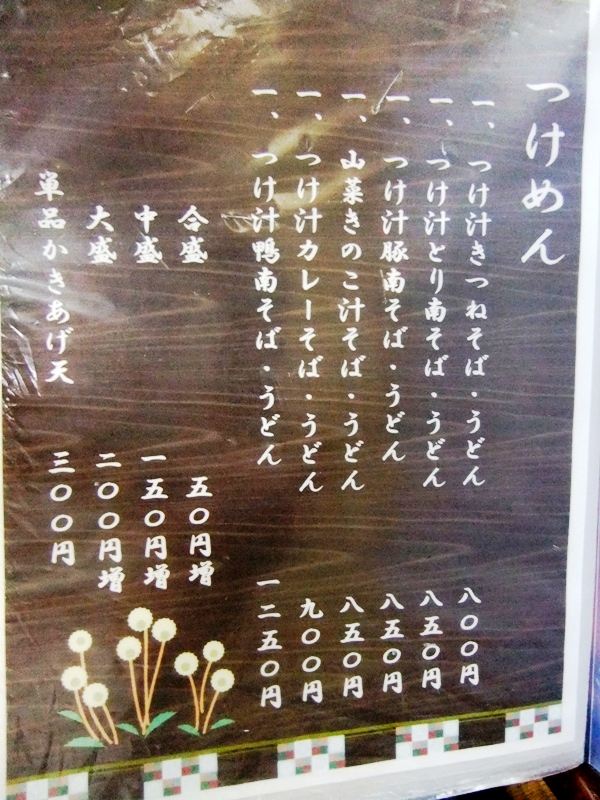 つけめん
一、つけ汁きつねそば・うどん 八〇〇円
一、つけ汁とり南そば・うどん 八五〇円
一、つけ汁豚南そば・うどん 八五〇円
一、山菜きのこ汁そば・うどん 八五〇円
一、つけ汁カレーそば・うどん 九〇〇円
一、つけ汁鴨南そば・うどん 一二五〇円
合盛 五〇円増
中盛 一五〇円増
大盛 二〇〇円増
単品かきあげ天 三〇〇円